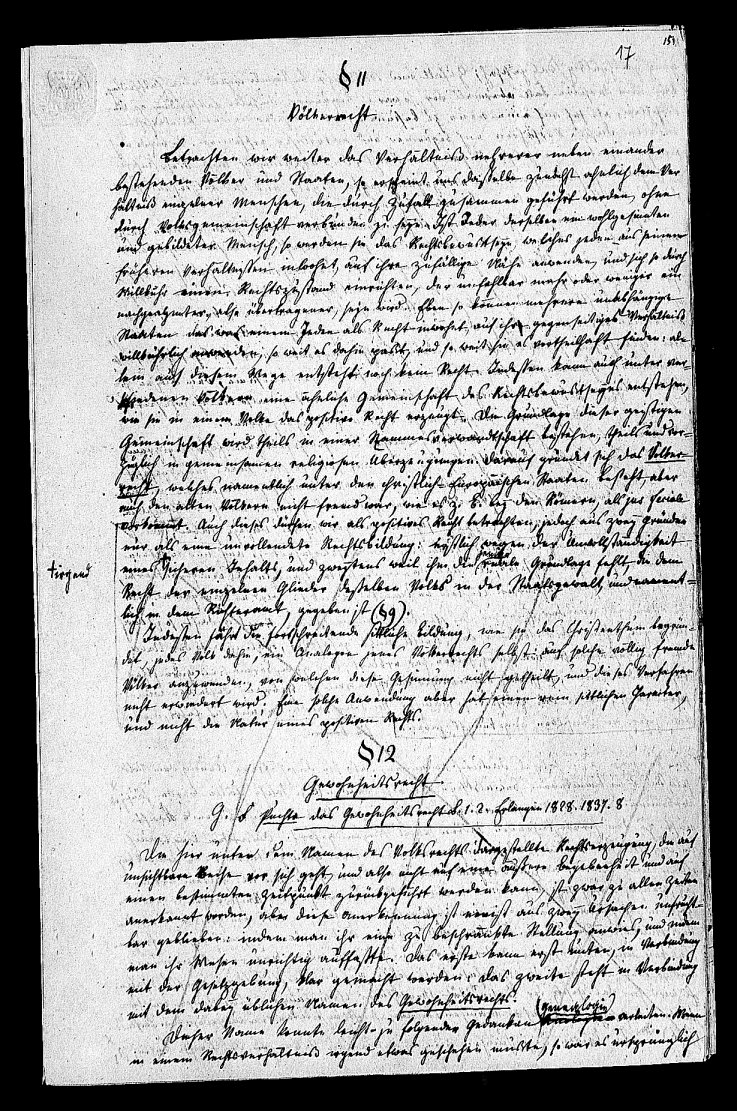 151
17
§ 11
Völkerrecht.
Betrachten wir weiter das Verhältniß mehrerer neben einander
bestehenden Völker und Staaten, so erscheint uns dasselbe zunächst ähnlich dem Ver-
hältniß einzelner Menschen, die durch Zufall zusammen geführt werden, ohne
durch Volksgemeinschaft verbunden zu seyn. Ist Jeder derselben ein wohlgesinnter
und gebildeter Mensch, so werden sie das Rechtsbewustseyn, welches jedem aus seinem
früheren Verhältnissen inwohnt, auf ihre zufällige Nähe anwenden, und sich so durch
Willkühr einen Rechtszustand einrichten, der unfehlbar mehr oder weniger ein
nachgeahmter, also übertragener, seyn wird. Eben so können mehrere unabhängige
Staaten das was einem Jeden als Recht inwohnt auf ihr gegenseitiges Verhältniß
willkührlich anwenden, so weit es dahin paßt, und so weit sie es vortheilhaft finden: al-
lein auf diesem Wege entsteht noch kein Recht. Indessen kann auch unter ver-
schiedenen Völkern eine ähnliche Gemeinschaft des Rechtsbewustseyns entstehen,
wie sie in einem Volke das positive Recht erzeugt. Die Grundlage dieser geistigen
Gemeinschaft wird theils in einer Stammesverwandtschaft bestehen, theils und vor-
züglich in gemeinsamen religiösen Überzeugungen. Darauf gründet sich das Völker-
recht, welches namentlich unter den christlich-Europäischen Staaten besteht, aber
auch den alten Völkern nicht fremd war, wie es z. B. bey den Römern, als jus feciale
vorkommt. Auch dieses dürfen wir als positives Recht betrachten, jedoch aus zwey Gründen
nur als eine unvollendete Rechtsbildung: erstlich wegen der Unvollständigkeit
eines sicheren Inhalts, und zweytens weil ihm die reale Grundlage fehlt, die dem
Recht der einzelnen Glieder desselben Volks in der Staatsgewalt, und nament-
lich in dem Richteramt, gegeben ist (§ 9).
Indessen führt die fortschreitende sittliche Bildung, wie sie das Christenthum begrün-
det, jedes Volk dahin, ein Analogon jenes Völkerrechts selbst auf solche völlig fremde
Völker anzuwenden, von welchen diese Gesinnung nicht getheilt, und dieses Verfahren
nicht erwiedert wird. Eine solche Anwendung aber hat einen rein sittlichen Character,
und nicht die Natur eines positiven Rechts.
§ 12
Gewohnheitsrecht
G. F. Puchta das Gewohnheitsrecht B. 1. 2. Erlangen 1828. 1837. 8
Die hier unter dem Namen des Volksrechts dargestellte Rechtserzeugung, die auf
unsichtbare Weise vor sich geht, und also nicht auf eine äußere Begebenheit und auf
einen bestimmten Zeitpunkt zurückgeführt werden kann, ist zwar zu allen Zeiten
anerkannt worden, aber diese Anerkennung ist meist aus zwey Ursachen unfrucht-
bar geblieben: indem man ihr eine zu beschränkte Stellung anwies, und indem
man ihr Wesen unrichtig auffaßte. Das erste kann erst unten, in Verbindung
mit der Gesetzgebung, klar gemacht werden: das zweite steht in Verbindung
mit dem dabey üblichen Namen des Gewohnheitsrechts.
Dieser Name konnte leicht zu folgender Gedanken (Genealogie) verleiten. Wenn
in einem Rechtsverhältniß irgend etwas geschehen mußte, so war es ursprünglich